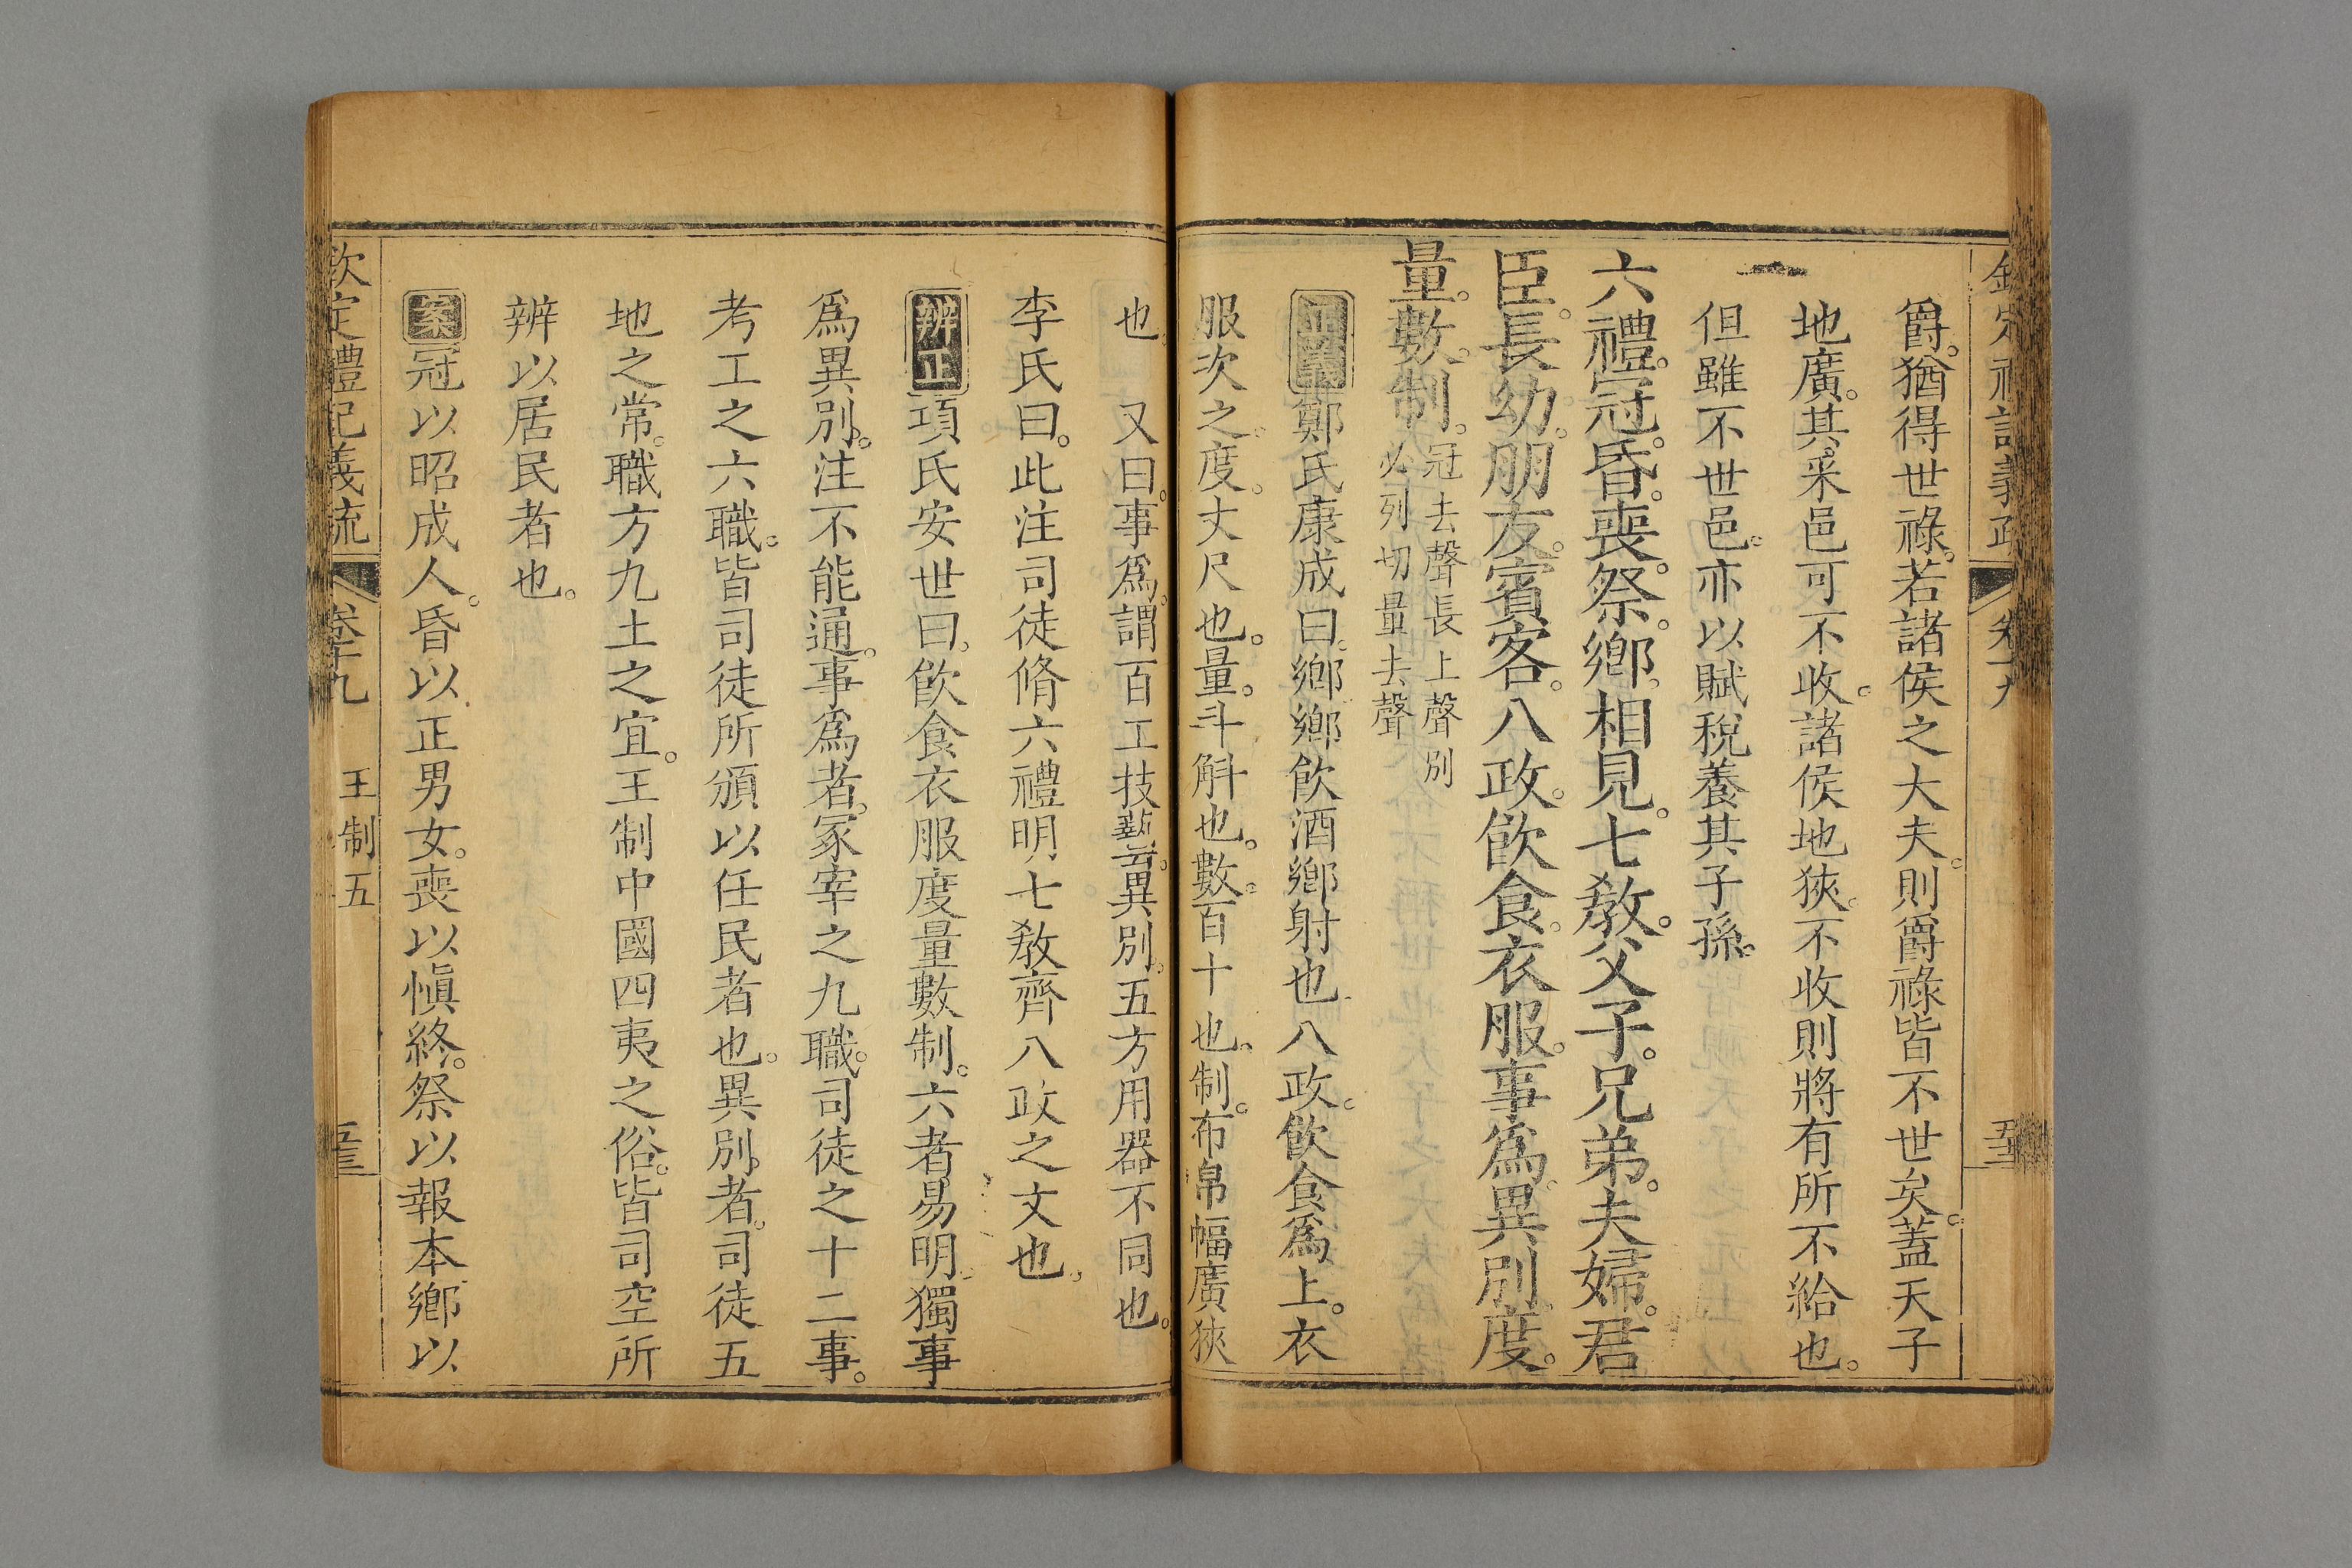 爵。猶得世祿。若諸侯之大夫。則爵祿皆不世矣。蓋天子
地廣。其采邑可不收。諸侯地狹。不收則將有所不給也。
但雖不世邑。亦以賦稅養其子孫。
六禮。冠。昏。喪。祭。鄉。相見。七敎。父子。兄弟。夫婦。君
臣。長幼。朋友。賓客。八政。飮食。衣服。事爲。異別。度。
量。數。制。
冠去聲長上聲別
必列切量去聲
正義鄭氏康成曰。鄉鄉飮酒鄉射也。八政。飮食爲上。衣
服次之。度。丈尺也。量。斗斛也。數。百十也。制。布帛幅廣狹
也。　又曰。事爲。謂百工技藝。異別。五方用器不同也。
李氏曰。此注司徒脩六禮明七敎齊八政之文也。
辨正項氏安世曰。飮食衣服度量數制。六者易明。獨事
爲異別。注不能通。事爲者。冢宰之九職。司徒之十二事。
考工之六職。皆司徒所頒以任民者也。異別者。司徒五
地之常。職方九土之宜。王制中國四夷之俗。皆司空所
辨以居民者也。
案冠以昭成人。昏以正男女。喪以愼終。祭以報本鄉以
欽定禮記義疏　卷十九　王制五